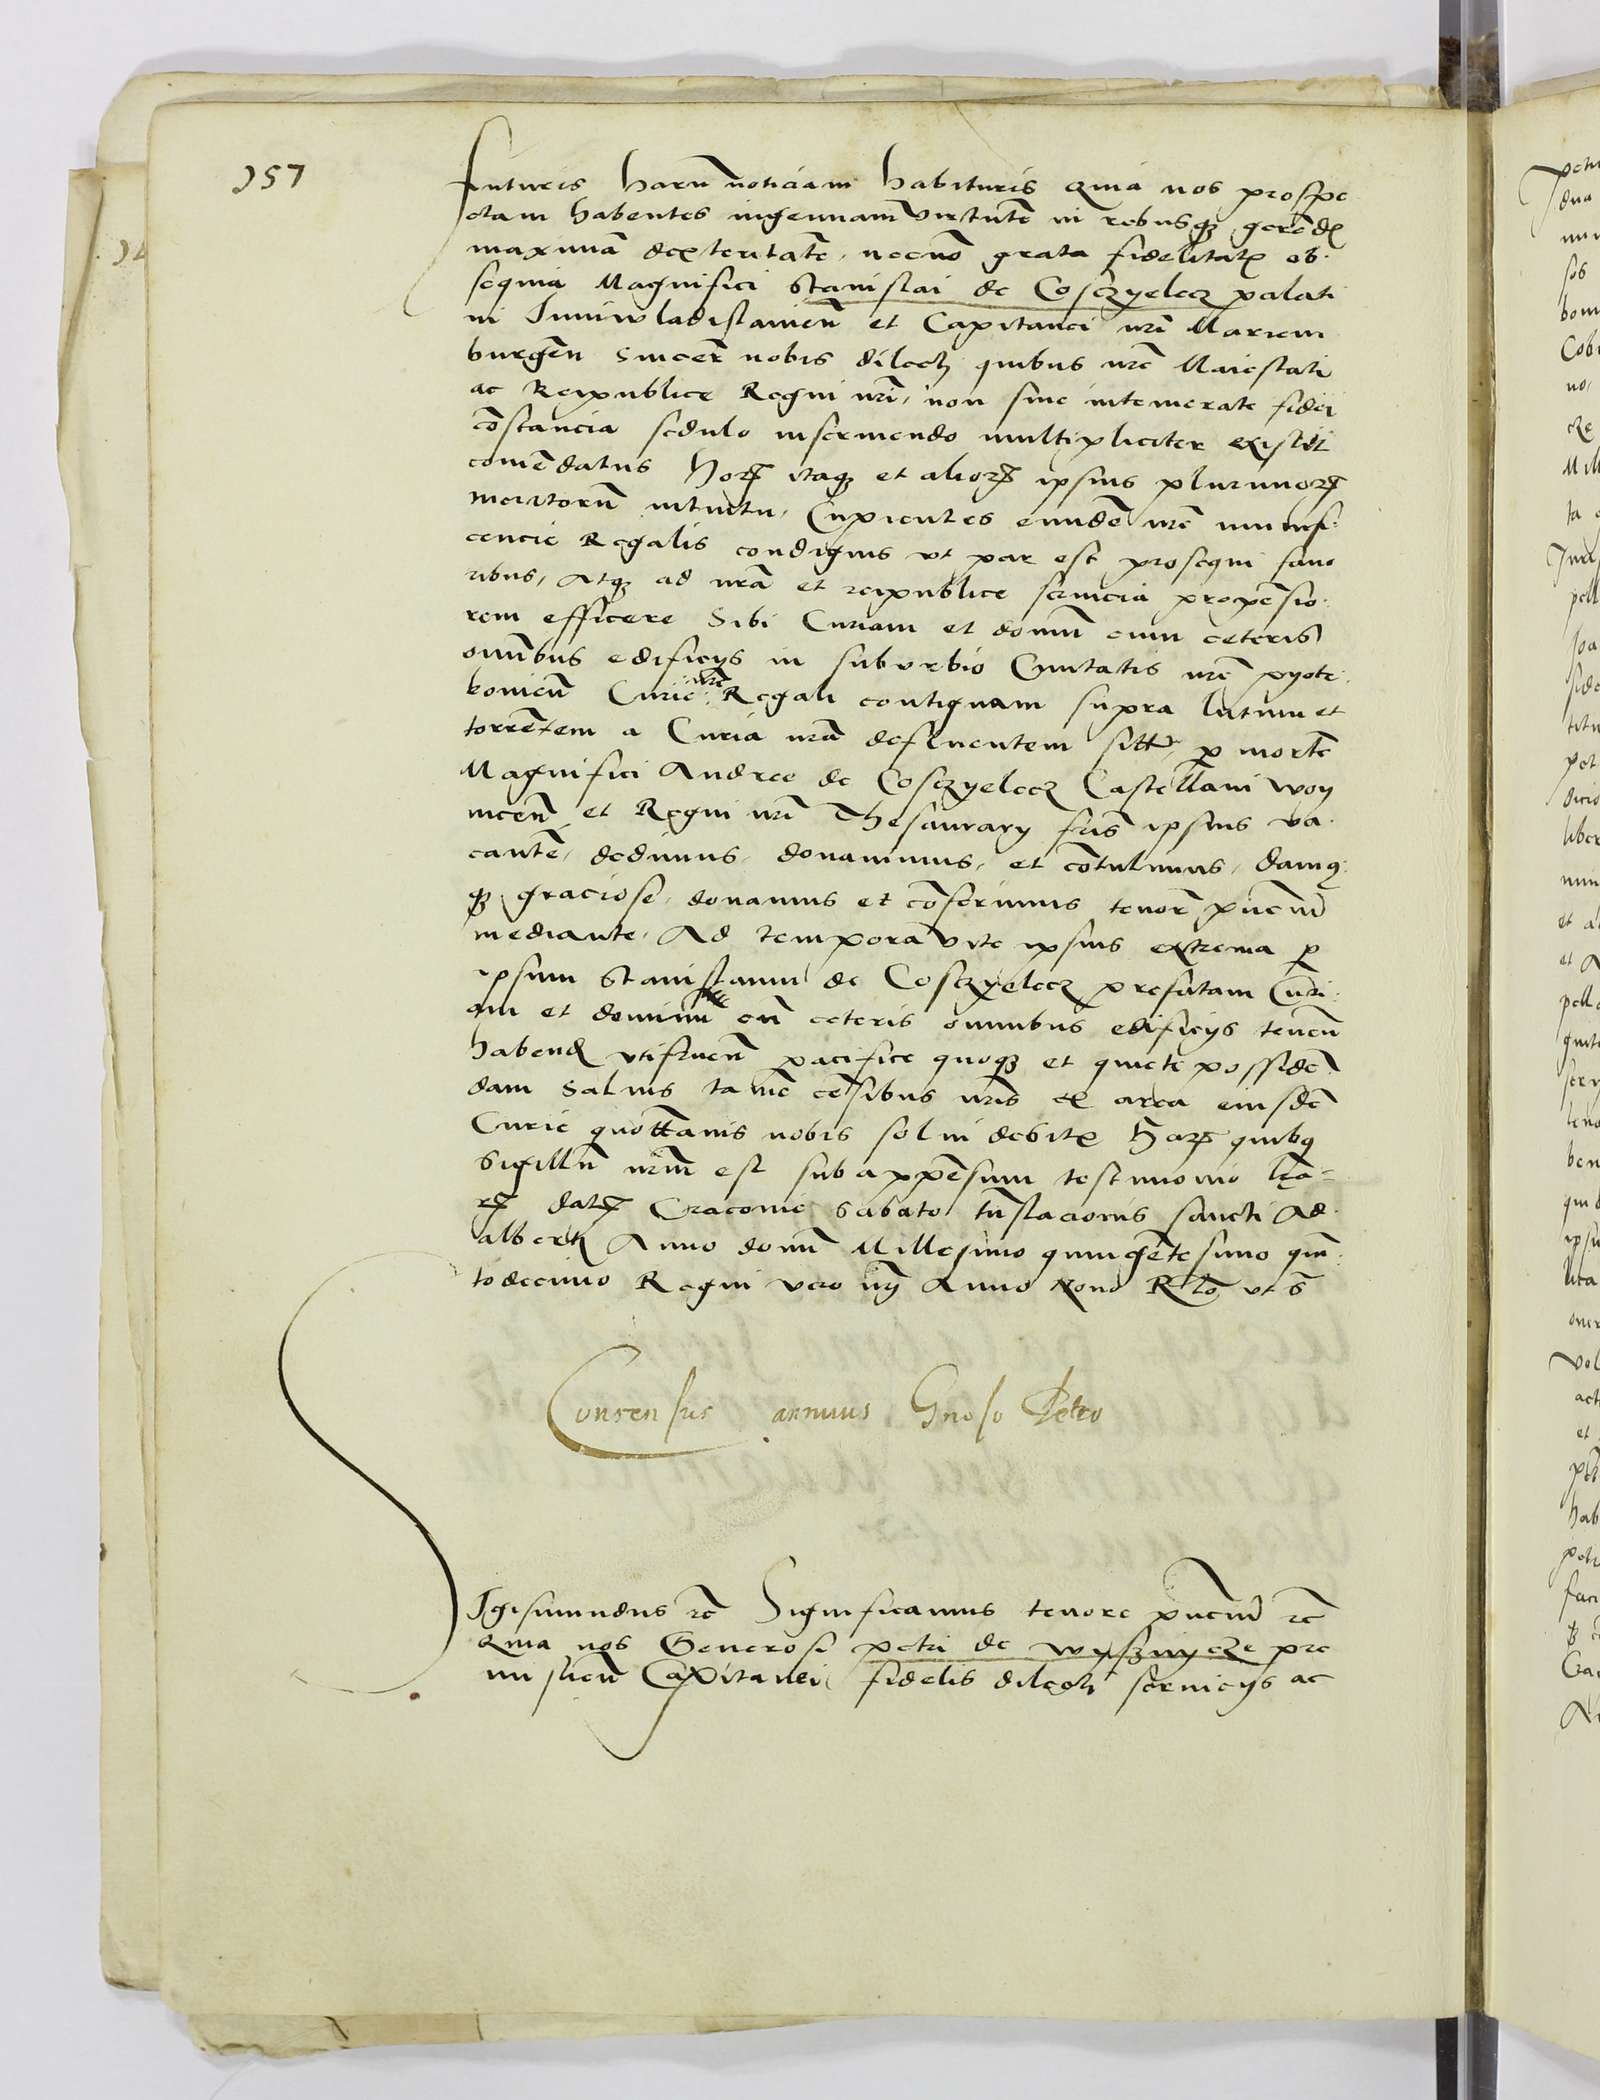 157
futuris harum noticiam habituris Quia nos prospe
ctam habentes ingenuam virtutẽ in rebusq; gerẽdis
maximã dexteritatẽ, necnõ grata fidelitatis ob-
sequia Magnifici Stanislai de Coszyelecz palati
ni Juniwladislauieñ et Capitanei nrĩ Mariem
burgeñ Sincerẽ nobis dilecti quibus nrẽ Maiestati
ac Reipublice Regni nrĩ, non sine intemerate fidei
cõstancia sedulo inseruiendo multipliciter existit
comẽdatus Horum itaq; et aliorum ipsius plurimorum
meritorum intuitu, Cupientes eundẽ nrẽ munifi-
cencie Regalis condignis vt par est prosequi fauo
ribus, Atq; ad nrã et reipublice seruicia propẽsio-
rem efficere Sibi Curiam et domũ cum ceteris
omĩbus edificijs in suburbio Ciuitatis nrẽ pyotr-
kouieñ Curie nrẽ Regali contiguam supra lutum et
torrẽtem a Curia nrã defluentem sitã, p mortẽ
Magnifici Andree de Coszyelecz Castellani woy
niceñ et Regni nrĩ Thesaurarij frĩs ipsius va-
cantẽ, dedimus, donauimus, et cõtulimus, damus
q; graciose, donamus et cõferimus tenore pñciũ
mediante, Ad tempora vite ipsius extrema p
ipsum Stanislaum de Coszyelecz prefatam Curi-
am et domum cũ ceteris omnibus edificijs teneñ
habend vtifrueñ pacifice quoq; et quiete possidẽ
dam Saluis tamẽ cẽsibus nrĩs ex area eiusdẽ
Curie quottanis nobis solui debitis Harum quibus
Sigillũ nrũm est subappẽsum testimonio lrã-
rum datum Cracouie Sabato trãslacionis sancti Ad-
alberti Anno domĩ Millesimo quingẽtesimo quin-
to decimo Regni vero nrĩ Anno Nono Relõ vt s
Consensus annuus Gnoso Petro
Igismundus rc Significamus tenore pñciũ rc
Quia nos Generosi petri de wyszniycze pre
misлieñ Capitanei fidelis dilecti seruicijs ac